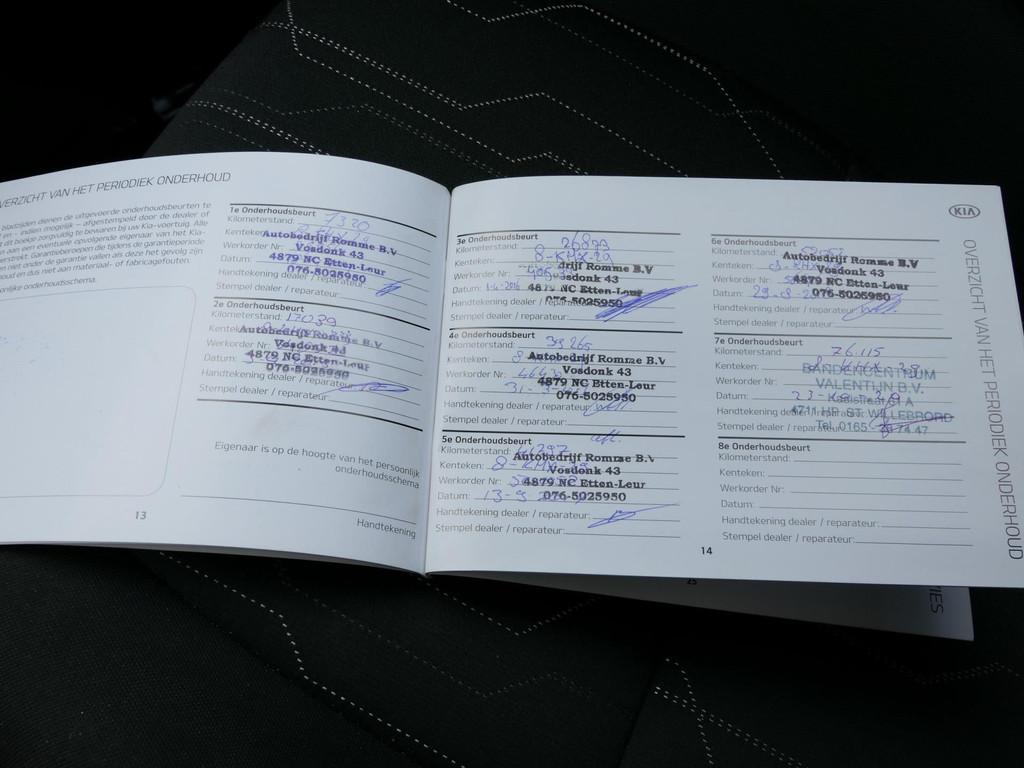 VERZICHT VAN HET PERIODIEK ONDERHOUD
bladzijden dienen de uitgevoerde onderhoudsbeurten te
en - indien mogelijk - afgestempeld door de dealer of
dit boekje zorgvuldig te bewaren bij uw Kia-voertuig. Alle
aan een eventuele opvolgende eigenaar van het Kia-
erstrekt. Garantieberoepen die tijdens de garantieperiode
niet onder de garantie vallen als deze het gevolg zijn
oud en dus niet aan materiaal- of fabricagefouten.
onlijke onderhoudsschema.
13
1e Onderhoudsbeurt
Kilometerstand: 1320
Kenteken
Autobedrijf Romme B.V
Werkorder Nr: Vosdonk 43
Datum: 4879 NC Etten-Leur
076-5025950
Handtekening dealer / reparateur
Stempel dealer / reparateur:
2e Onderhoudsbeurt
Kilometerstand: 17039
Kenteken
Autobedrijf Romme B.V
Werkorder Nr: Vosdonk 43
Datum: 4879 NC Etten-Leur
076-5025950
Handtekening dealer / reparateur
Stempel dealer / reparateur:
Eigenaar is op de hoogte van het persoonlijk
onderhoudsschema
Handtekening
3e Onderhoudsbeurt
Kilometerstand: 26873
Kenteken: 8-KMX-29
drijf Romme B.V
Werkorder Nr: osdonk 43
Datum: 1-4-2016 4879 NC Etten-Leur
076-5025950
Handtekening dealer / reparateur
Stempel dealer / reparateur:
4e Onderhoudsbeurt
Kilometerstand: 39265
Kenteken: 8
Autobedrijf Romme B.V
Werkorder Nr: Vosdonk 43
4879 NC Etten-Leur
Datum: 31- 076-5025950
Handtekening dealer / reparateur
Stempel dealer / reparateur:
5e Onderhoudsbeurt
Kilometerstand: 44297
Autobedrijf Romme B.V
Kenteken: 8-KMX-29
Vosdonk 43
Werkorder Nr: 4879 NC Etten-Leur
Datum: 13-9 076-5025950
Handtekening dealer / reparateur:
Stempel dealer / reparateur:
14
25
6e Onderhoudsbeurt
Kilometerstand:
Autobedrijf Romme B.V
Kenteken: 8-KMX Vosdonk 43
Werkorder Nr: 4879 NC Etten-Leur
Datum: 29-8-2 076-5025950
Handtekening dealer / reparateur
Stempel dealer / reparateur:
7e Onderhoudsbeurt
Kilometerstand: 76.115
Kenteken: 8 KMX 29
BANDENCENTRUM
Werkorder Nr: VALENTIJN B.V.
Datum: 23- Kaaistraat 51 A
Handtekening dealer 4711 HP ST. WILLEBRORD
Stempel dealer / reparateur Tel. 0165 - 74 47
8e Onderhoudsbeurt
Kilometerstand:
Kenteken:
Werkorder Nr:
Datum:
Handtekening dealer / reparateur:
Stempel dealer / reparateur:
KIA
OVERZICHT VAN HET PERIODIEK ONDERHOUD
IES